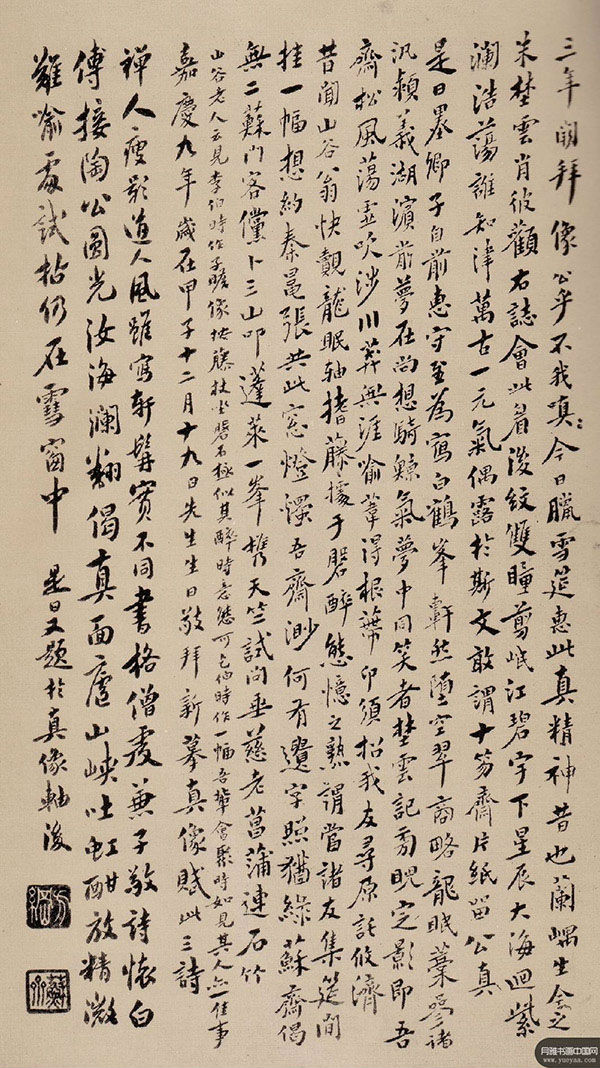 三年開拜像公乎不我嗔今日臘雪筵惠此真精神昔也蘭嵎生今之
朱埜雲肖彼顴右誌會此眉後紋雙瞳剪岷江碧字下星辰大海迴紫
瀾浩蕩誰知津萬古一元氣偶露於斯文敢謂十笏齋片紙留公真
是日墨卿子自前惠守至為寫白鶴峯軒然墮空翠商略龍眠藁
汎潁義湖濱前夢在尚想騎鯨氣夢中同笑者埜雲記定影即吾
齋松風蕩雲吹涉川葬無涯喻葦得根諦印須招我友尋原託攸濟
昔聞山谷翁快觀龍眠軸搘藤據于磐醉態憶之熟謂當諸友集筵間
挂一幅想約秦晁張共此窓燈燭吾齋渺何有遺字照猶綠蘇齋偈
無二蘇門客儻卜三山叩蓬萊一峯攜天竺試問垂慈老菖蒲連石竹
山谷老人云見李伯時作子瞻像按藤杖坐磐石極似其醉時意態可乞伯時作一幅吾輩會聚時如見其人亦一佳事
嘉慶九年歲在甲子十二月十九日先生生日敬拜新摹真像賦此三詩
禪人瘦影道人風雖寫軒髯實不同書格僧虔兼子敬詩懷白
傅接陶公圓光汝海瀾翻偈真面廬山峽吐虹酣放精微
難喻處試拈仍在雪窗中
是日又題於真像軸後
月雅书画中国网
www.yueyaa.com